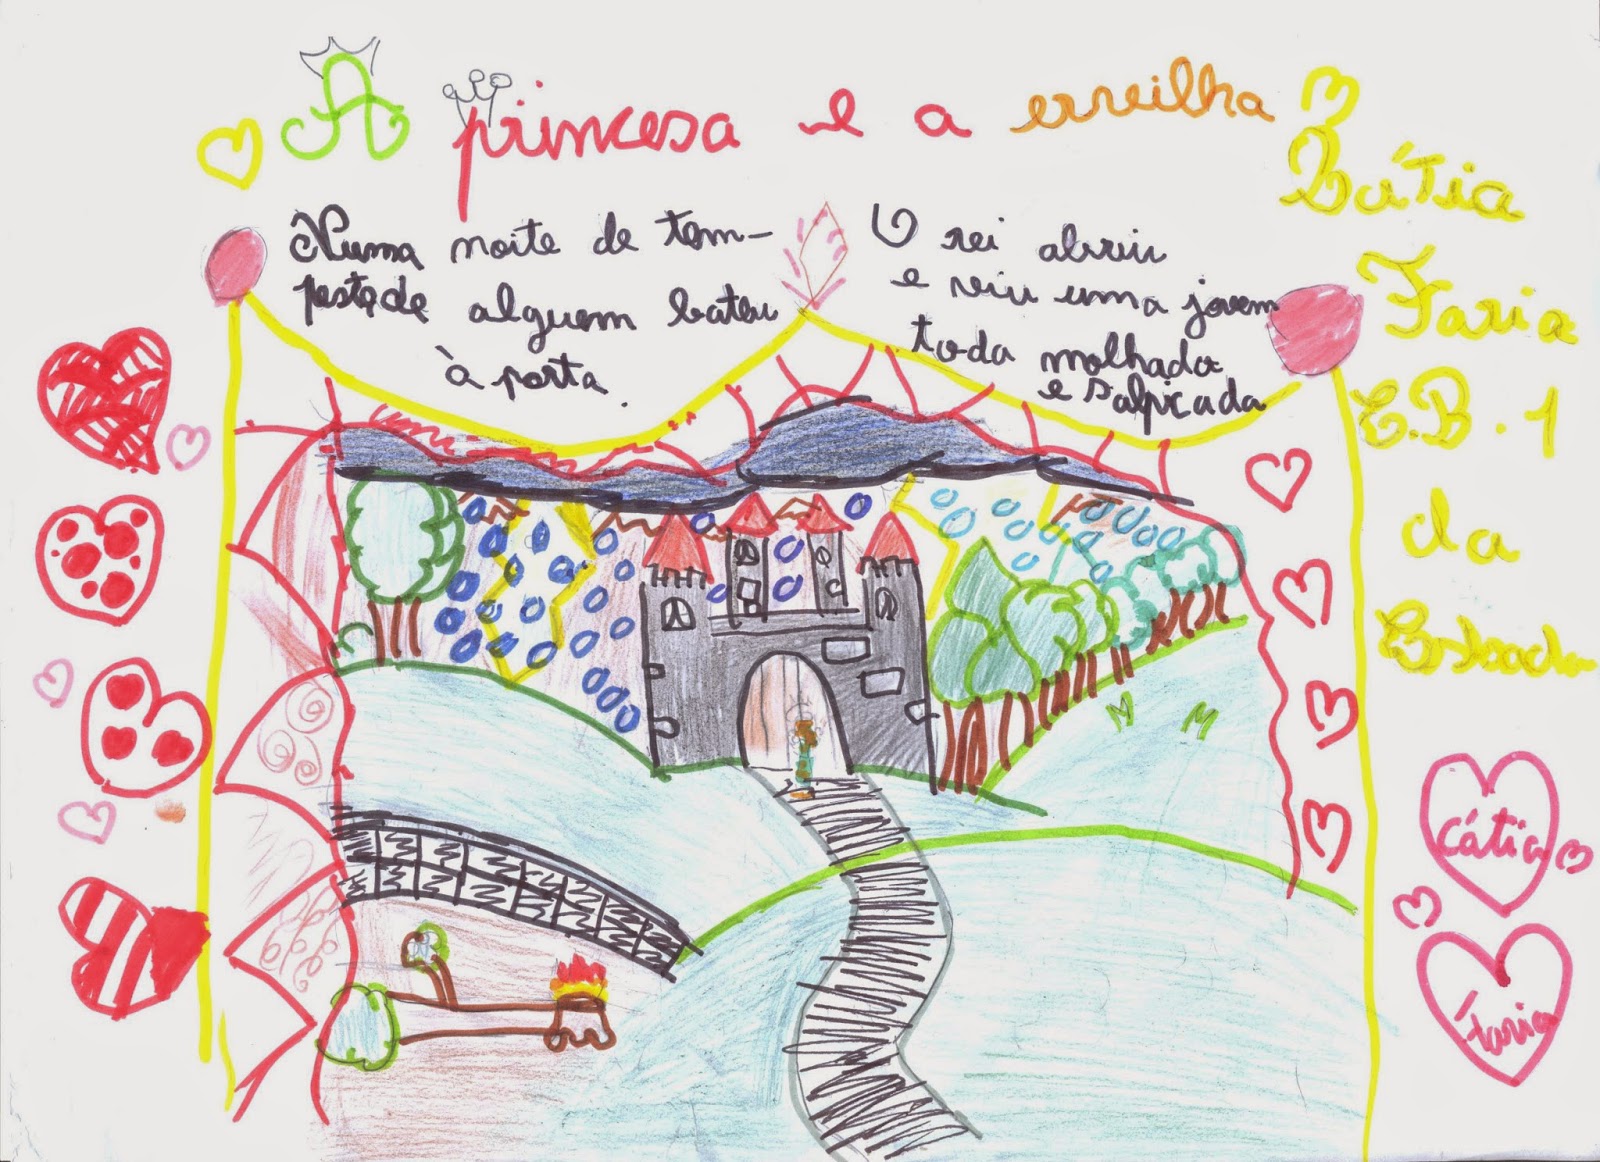 A princesa e a erveilha
Numa noite de tem-
pestade alguem bateu
à porta.
O rei abriu
e veiu uma jovem
toda molhada
e salpicada
Cátia
Faria
E.B.1
da
Cátia
Faria